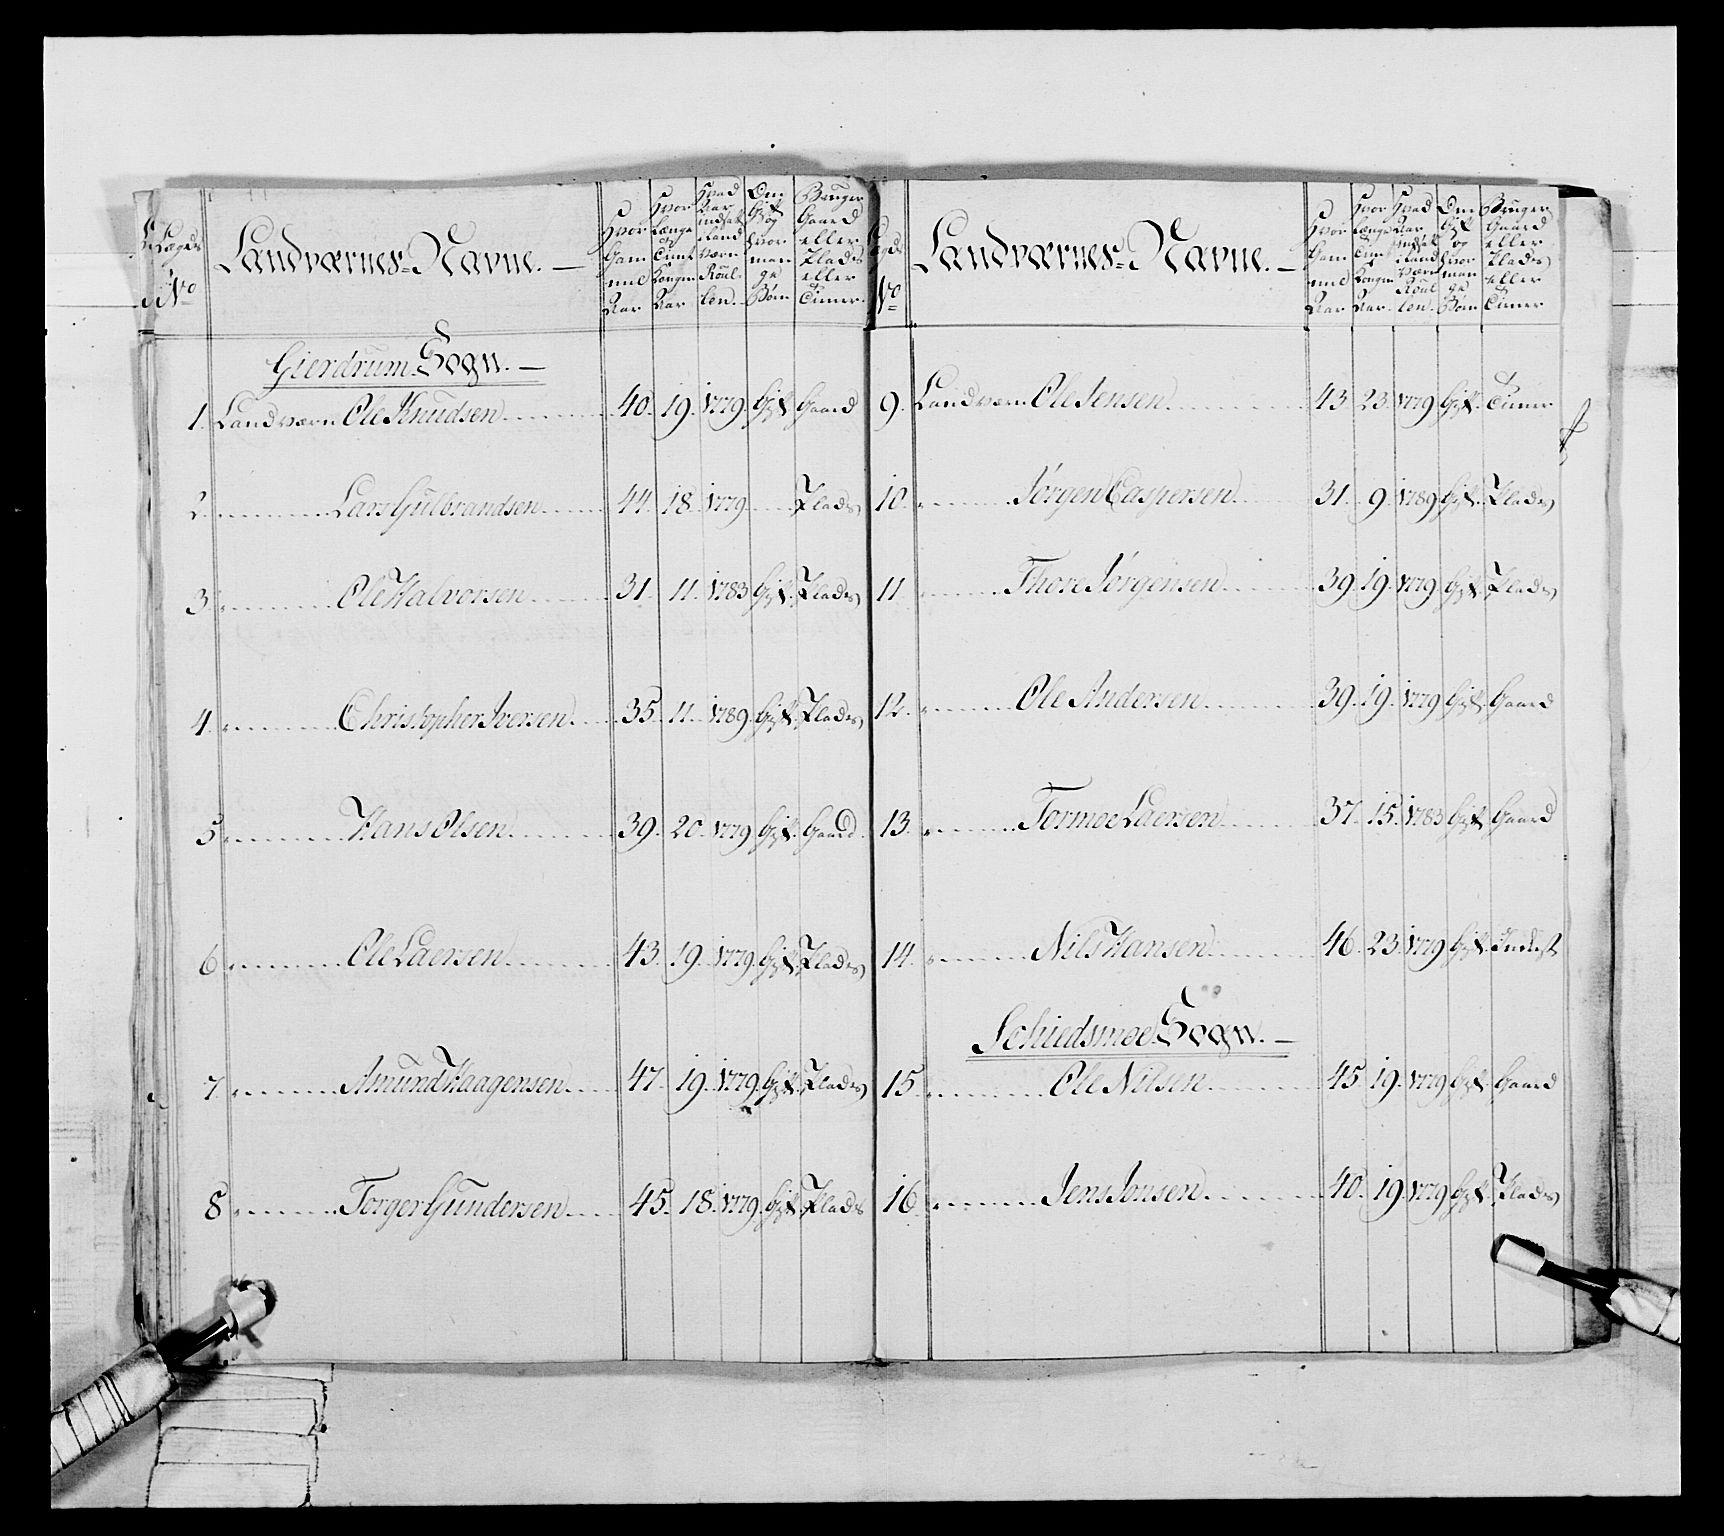 Lægds No
Landværnes-Navne.
Hvor Gammel Aar
Hvor Længe og Tient Kongen Aar
Hvad Aar indsat i Landværns Roullen.
Om Gift og hvor mange Børn
Bruger Gaard eller Plads eller Tiener.
Gierdrum Sogn.
1. Landværn Ole Knudsen 40. 19. 1779. Gift. Gaard
2. Lars Gulbrandsen 44. 18. 1779. Plads
3. Ole Halvorsen 31. 11. 1783 Gift. Plads
4. Christopher Iversen 35. 11. 1789. Gift. Plads
5. Hans Olsen 39. 20. 1779 Gift. Gaard.
6. Ole Laersen 43. 19. 1779. Gift. Plads
7. Amund Haagensen 47. 19. 1779. Gift. Plads
8. Torger Gundersen 45. 18. 1779. Gift. Plads
Lægds No
Landværnes-Navne.
Hvor Gammel Aar
Hvor Længe og Tient Kongen Aar.
Hvad Aar indsat i Landværns Roullen.
Om Gift og hvor mange Børn
Bruger Gaard eller Plads eller Tiener
9. Landværn Ole Jensen 43. 23. 1779 Gift. Tiener
10. Jørgen Caspersen 31. 9. 1789 Gift. Plads
11. Thore Jørgensen 39. 19. 1779 Gift. Plads
12. Ole Andersen 39. 19. 1779 Gift. Gaard
13. Tormoe Laersen 37. 15. 1783 Gift. Gaard
14. Nils Hansen 46. 23. 1779 Gift. Inderst
Schiedsmoe Sogn.
15. Ole Nilsen 45 19. 1779 Gift. Gaard
16. Jens Jonsen 40. 19. 1779 Gift. Plads